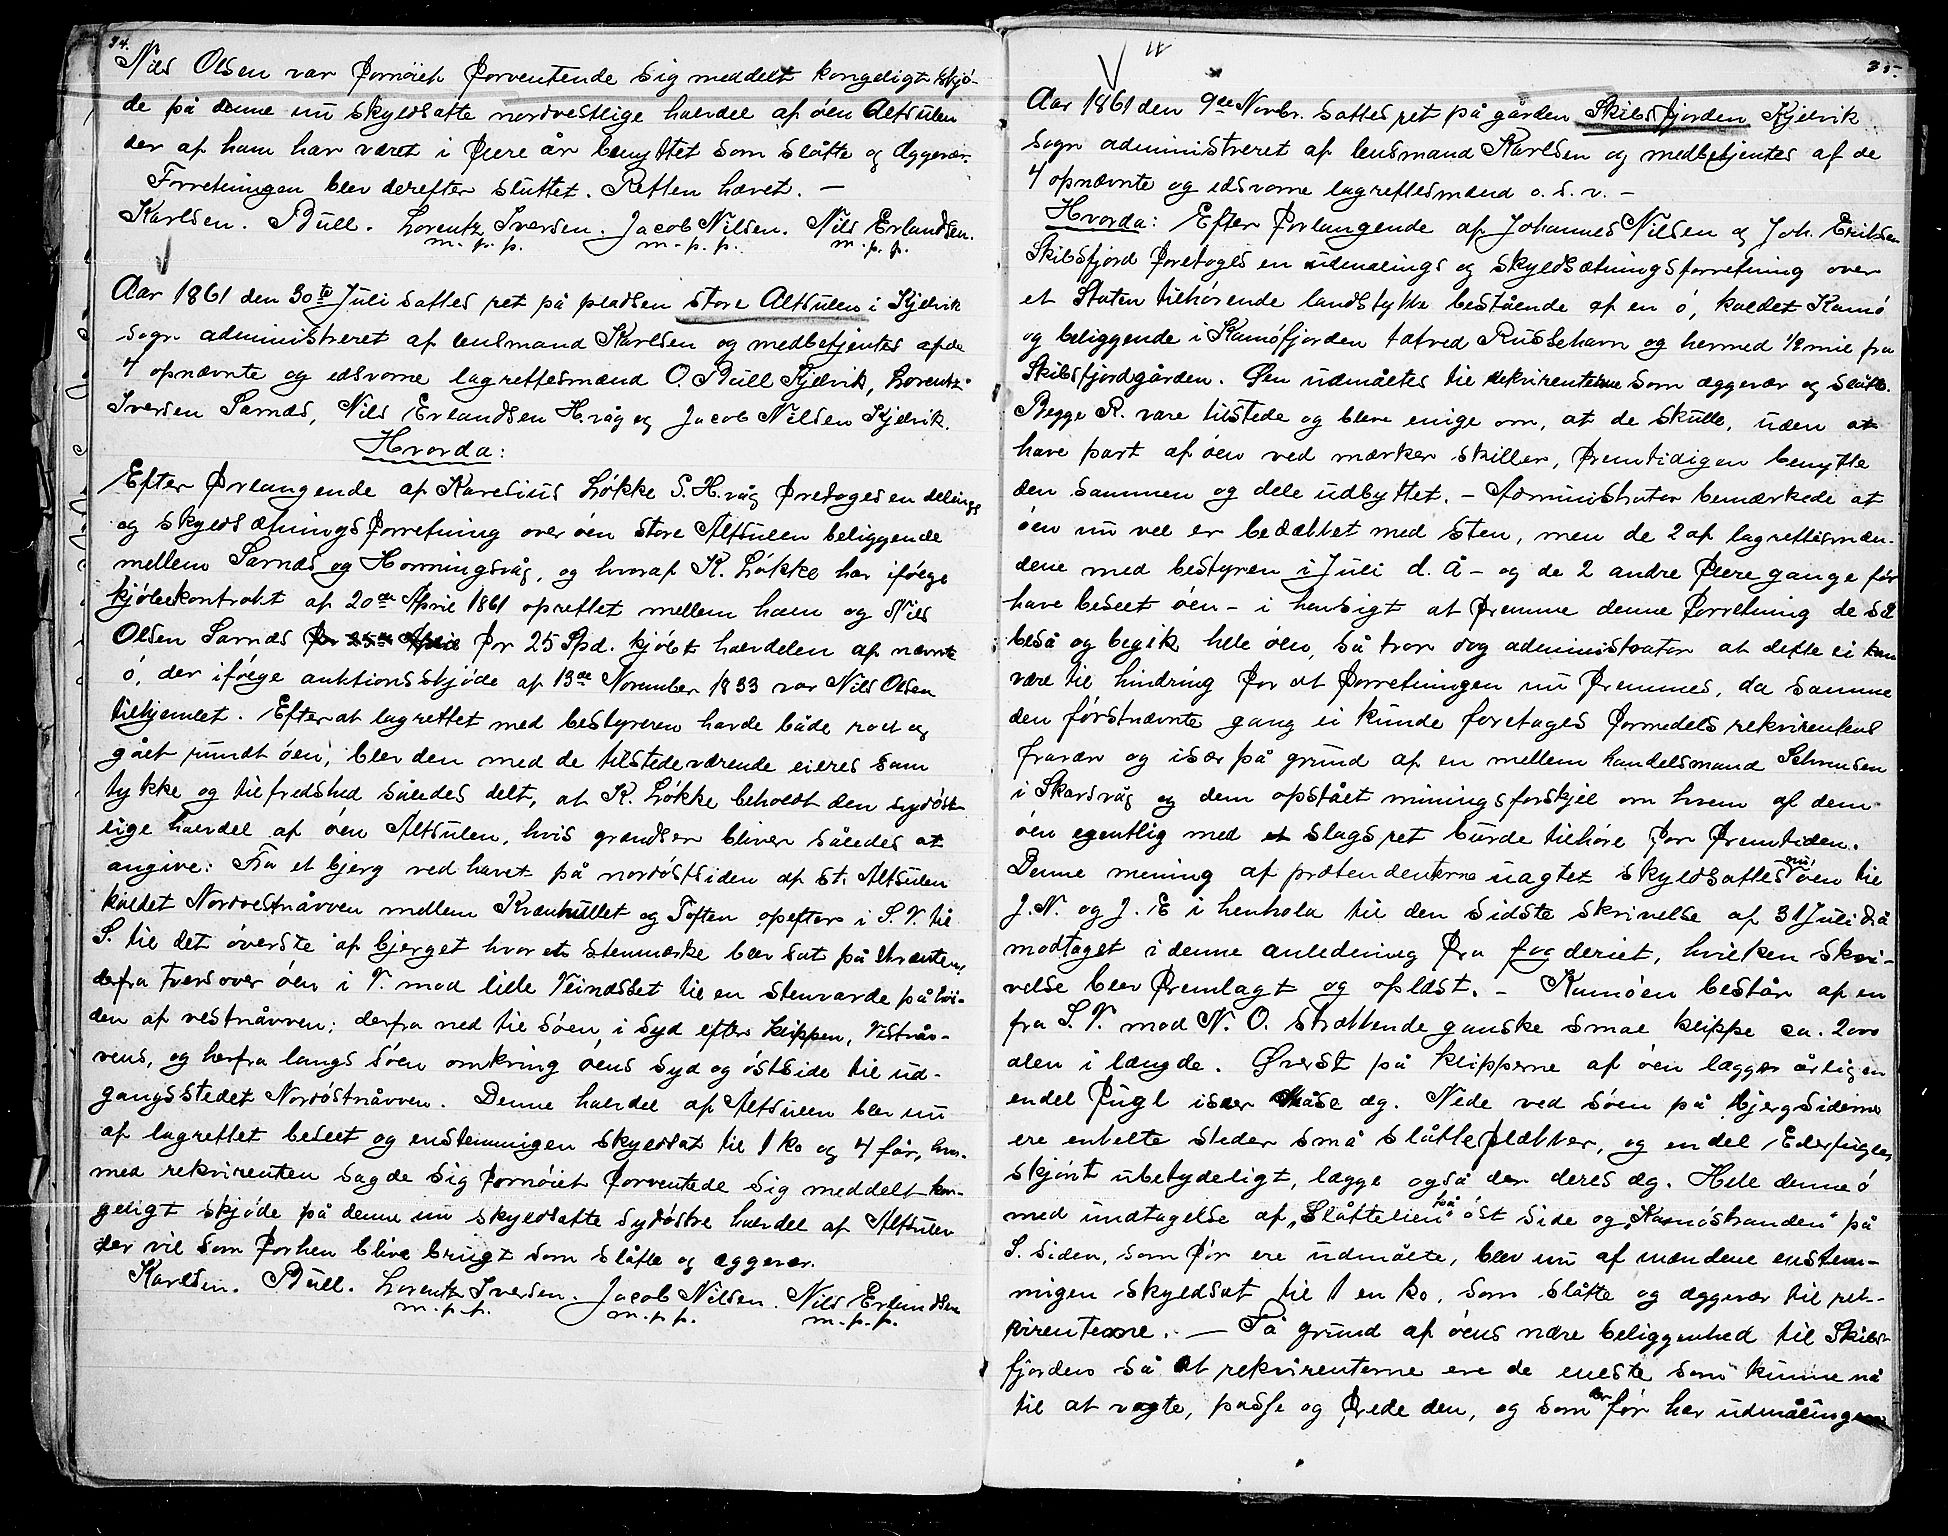 34.
Nils Olsen var fornöiet forventende sig meddelt kongeligt skjö-
de på denne nu skyldsatte nordvestlige halvdel af öen Altsulen
der af ham har været i flere år benyttet som slåtte og æggevær.
Forretningen blev derefter sluttet. Retten hævet. —
Karlsen. Bull. Lorentz Iversen. Jacob Nilsen. Nils Erlandsen.
m. p. p. m. p. p. m. p. p.
Aar 1861 den 30te Juli sattes ret på pladsen store Altsulen i Kjelvik
sogn administreret af lensmand Karlsen og medbetjentes af de
4 opnævnte og edsvorne lagrettesmænd O. Bull Kjelvik, Lorentz
Iversen Sarnæs, Nils Erlandsen H.våg og Jacob Nilsen Kjelvik.
Hvorda:
Efter forlangende af Karelius Lökke S. H.våg foretoges en delings
og skyldsætningsforretning over öen store Altsulen beliggende
mellem Sarnæs og Honningsvåg, og hvoraf K. Lökke har ifölge
kjöbekontrakt af 20de April 1861 oprettet mellem ham og Nils
Olsen Sarnæs for 25de April for 25 Spd. kjöbt halvdelen af nævnte
ö, der ifölge auktionsskjöde af 13de November 1833 var Nils Olsen
tilhjemlet. Efterat lagrettet med bestyreren havde både roet og
gået rundt öen, blev den med de tilstedeværende eieres sam
tykke og tilfredshed således delt, at K. Lökke beholdt den sydöst-
lige halvdel af öen Altsulen, hvis grændser bliver således at
angive: Fra et bjerg ved havet på nordöstsiden af st. Altsulen
kaldet Nordvestnåvven mellem Kvænhullet og Toften opefter i S. V. til
S. til det överste af bjerget hvor et stenmærke blev sat på skrænten,
derfra tversover öen i V. mod lille Veindsset til en stenvarde på höi-
den af vestnåvven; derfra ned til söen, i syd efter klippen, Vestnåv-
vens, og herfra langs söen omkring öens syd og östside til ud-
gangsstedet Nordöstnåvven. Denne halvdel af Altsulen blev nu
af lagrettet beseet og enstemmigen skyldsat til 1 ko og 4 får, hvor-
med rekvirenten sagde sig fornöiet forventede sig meddelt kon-
geligt skjöde på denne nu skyldsatte sydöstre halvdel af Altsulen
der vil som forhen blive brugt som slåtte og æggevær.
Karlsen. Bull. Lorentz Iversen. Jacob Nilsen. Nils Erlandsen
m. p. p. m. p. p. m. p. p.
35.
Aar 1861 den 9de Novbr. sattes ret på gården Skibsfjorden Kjelvik
sogn administreret af lensmand Karlsen og medbetjentes af de
4 opnævnte og edsvorne lagrettesmænd o. s. v. —
Hvorda: Efter forlangende af Johannes Nilsen og Joh. Eriksen
Skibsfjord foretoges en udmålings og skyldsætningsforretning over
et Staten tilhörende landstykke bestående af en ö, kaldet Kamö
og beliggende i Kamöfjorden tætved Russehavn og hermed 1/2 mil fra
Skibsfjordgården. Öen udmåltes til rekvirenterne som æggevær og slåtte.
Begge R. vare tilstede og bleve enige om, at de skulle, uden at
have part af öen ved mærker skiller, fremtidigen benytte
den sammen og dele udbyttet. — Administrator bemærkede at
öen nu vel er bedækket med sten, men de 2 af lagrettesmæn-
dene med bestyren i Juli d. Å — og de 2 andre flere gange för
have beseet öen — i hensigt at fremme denne forretning de så
beså og begik hele öen, så tror dog administrator at dette ei kan
være til hindring for at forretningen nu fremmes, da samme
den förstnævnte gang ei kunde foretages formedels rekvirentens
fravær og især på grund af en mellem handelsmand Schrensen
i Skarsvåg og dem opstået miningsforskjel om hvem af dem
öen egentlig med et slags ret burde tilhöre for fremtiden.
Denne mening af prætendenterne uagtet skyldsattes nu öen til
J. N. og J. E i henhold til den sidste skrivelse af 31 Juli d. å
modtaget i denne anledning fra fogderiet, hvilken skri-
velse blev fremlagt og oplæst. — Kamöen består af en
fra S. V. mod N. O. strækkende ganske smal klippe ca. 2000
alen i længde. Överst på klipperne af öen lægger årligen
endel fugl især Måse æg. Nede ved söen på bjergsiderne
ere enkelte steder små slåtteflækker, og en del Ederfugler
skjönt ubetydeligt, lægge også der deres æg. Hele denne ö
med undtagelse af „Slåttelien" på öst side og „Kamöstranden" på
S. siden, som för ere udmålte, blev nu af mændene enstem-
migen skyldsat til 1 en ko, som slåtte og æggevær til rek-
virenterne. — På grund af öens nære beliggenhed til Skibs-
fjorden så at rekvirenterne ere de eneste som kunne nå
til at vogte, passe og frede den, og som för har udmålingen